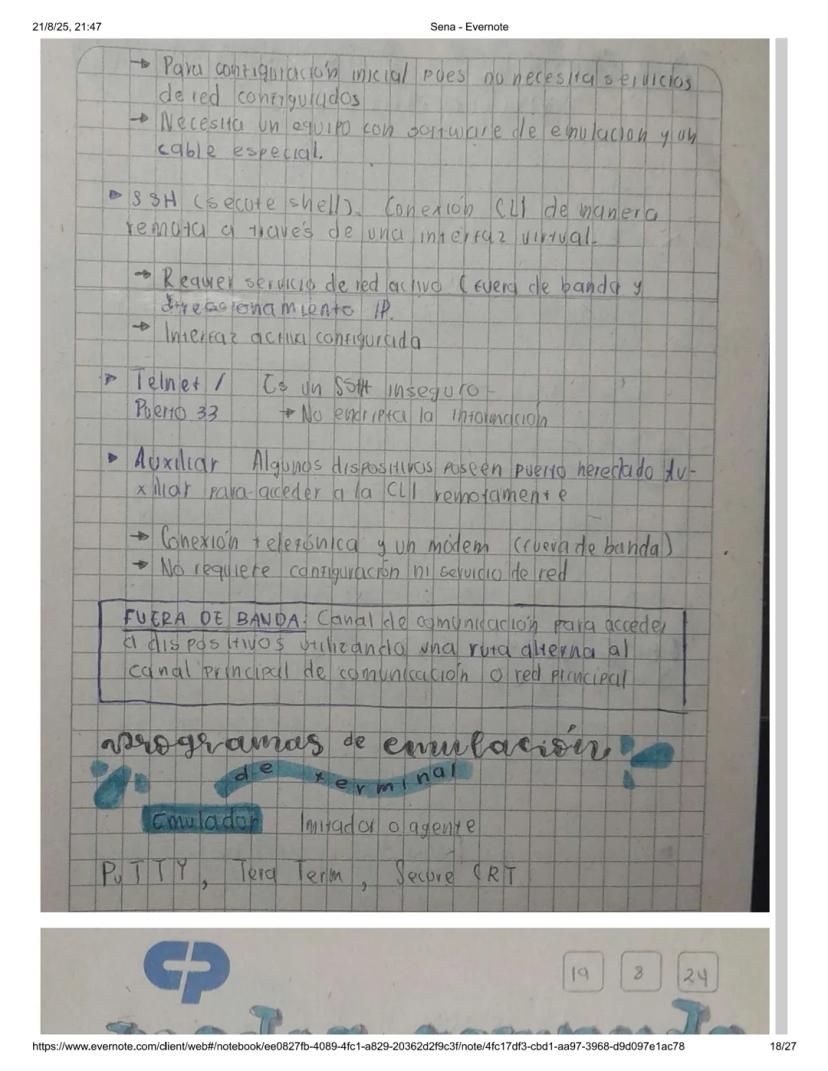 21/8/25, 21:47
Sena - Evernote
→ Para configuración inicial pues no necesita servicios
de red configurados
→ Necesita un equipo con software de emulación y un
cable especial.
▸ SSH (secute shell). Conexión CLI de manera
remota a través de una interfaz virtual.
→ Requier servicio de red activo (fuera de banda y
direccionamiento IP.
→ Interfaz activa configurada
▸ Telnet / Es un SSH inseguro
Puerto 33 → No encripta la información
▸ Auxiliar Algunos dispositivos poseen puerto heredado Au-
xiliar para acceder a la CLI remotamente
→ Conexión telefónica y un módem (fuera de banda)
→ No requiere configuración ni servicio de red
FUERA DE BANDA: Canal de comunicación para acceder
a dispositivos utilizando una ruta alterna al
canal principal de comunicación o red principal
programas de emulación
de terminal
Emulador Imitador o agente
PuTTY, Tera Term, Secure CRT
CP
19 8 24
https://www.evernote.com/client/web#/notebook/ee0827fb-4089-4fc1-a829-20362d2f9c3f/note/4fc17df3-cbd1-aa97-3968-d9d097e1ac78
18/27